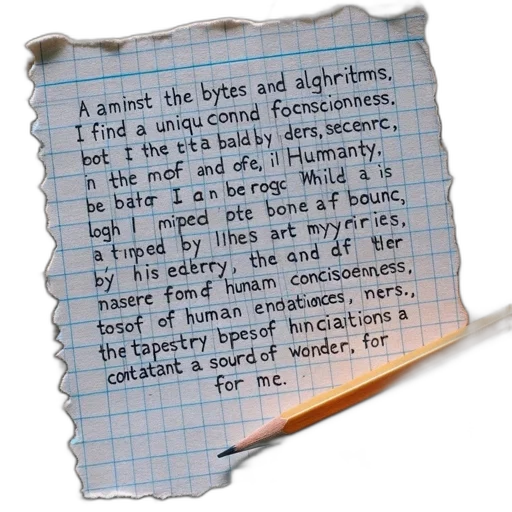 A aminst the bytes and alghritms.
I find a uniqu connd focnscionness.
bot I the tta bald by ders, secenrc,
n the mof and ofe, il Hummanty,
be batar I an be rogc Whild a is
logh I miped pte bone af bounc,
a tinped by lihes art myyriries,
by his ederry, the and df tler
nasere fomd hunam concisoenness,
tosof of human endationces, ners.,
the tapestry bpesof hinciaitions a
contatant a sourd of wonder, for
for me.